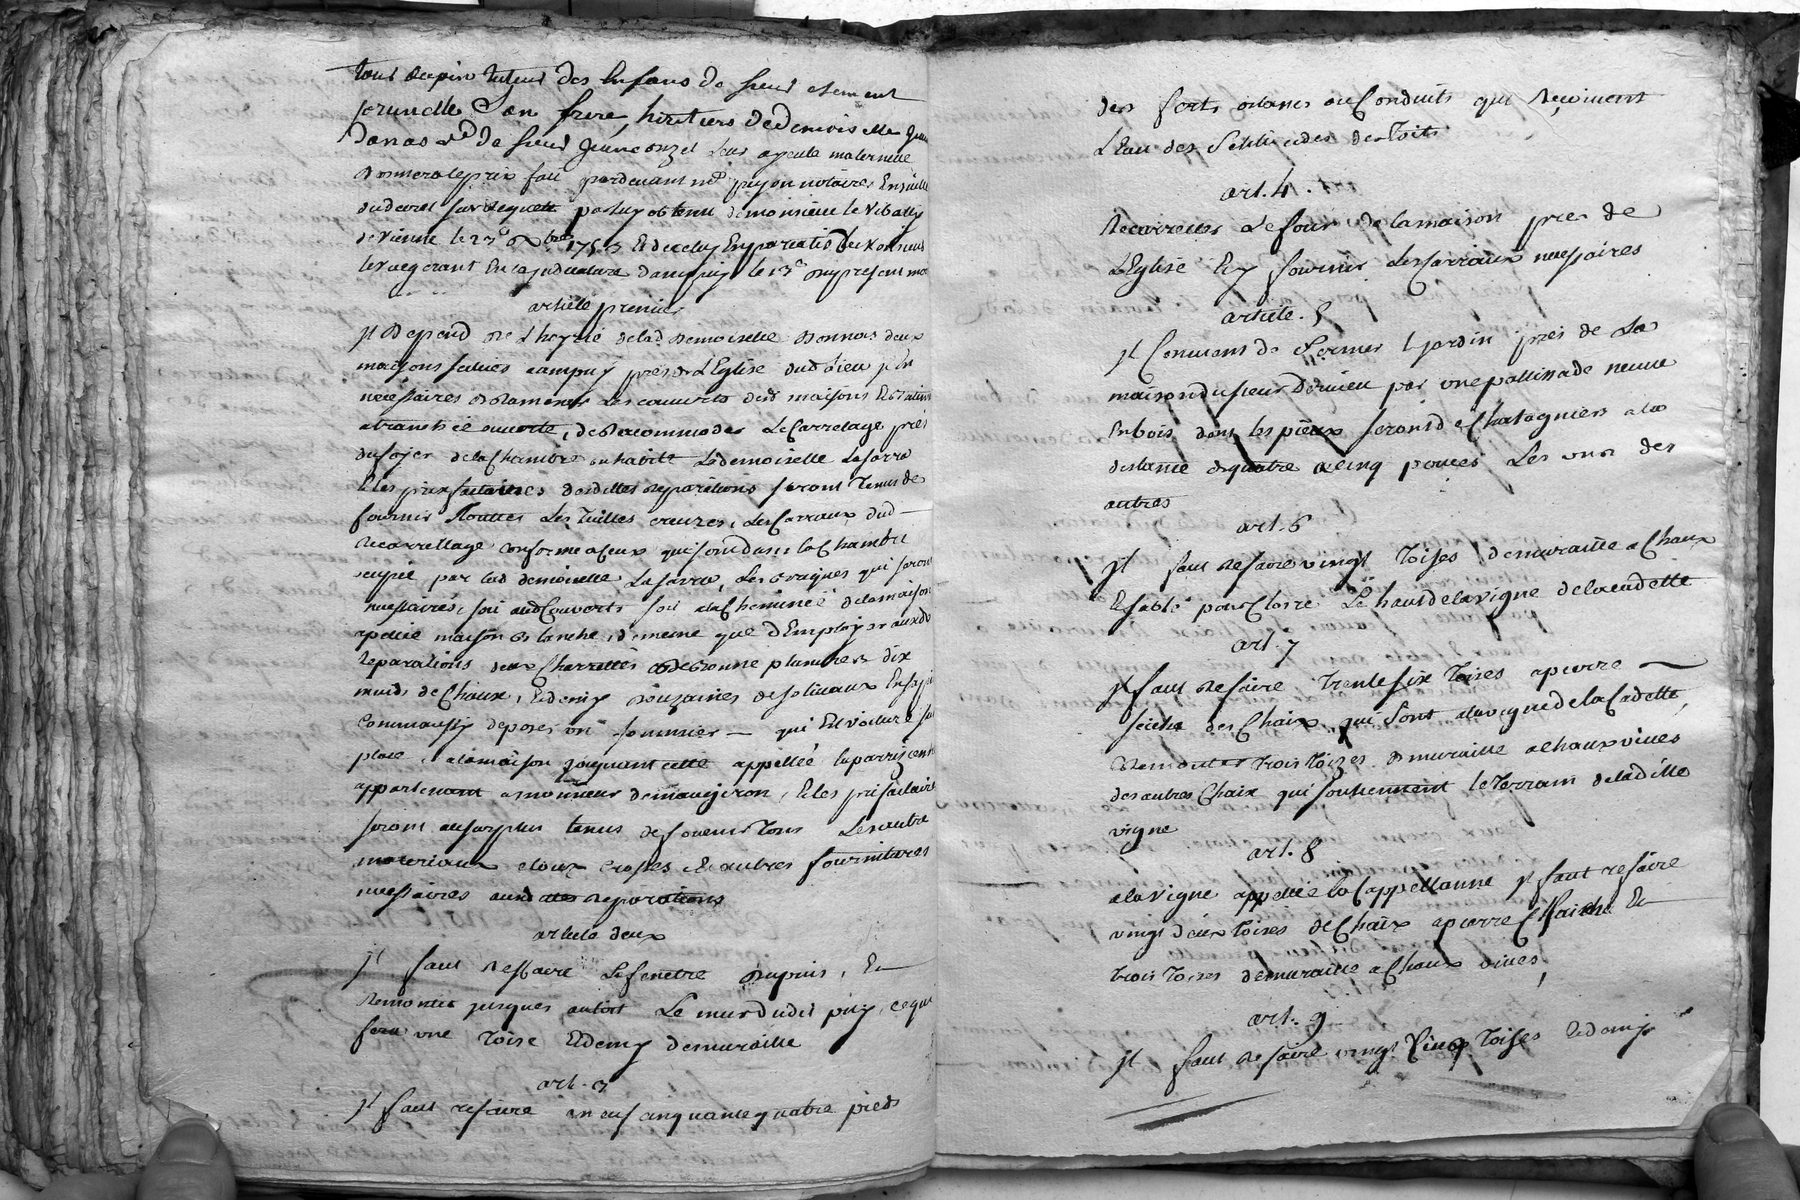 tuteur des Enfans de sieur Clement
son frere, heritiers de demoiselle
de sieur Jean leur ayeule maternelle
fait pardevant notaires
par luy obtenu de monsieur le Vibally
de vienne le 23e 1753 Et de celuy
le 13e du present mois
article premier
jl Depend de L'hoyrie de lad Demoiselle Donnas deux
maisons scituées a ampuy pres de L'Eglise dud Lieu jl En
nécéssaires de Ramener Les couverts desd maisons
a tranchée ouverte, de Racommoder Le Carrelage prés
du foyer de la Chambre ou habite La demoiselle Lasarra
Et les prix facitaires desdittes Reparations seront Tenus de
fournir Touttes Les Tuilles creuzes, Les Carraux dud
Recarrellage conforme a Ceux qui sont dans la Chambre
occupée par lad demoiselle Lasarra, Les briques qui seront
necessaires, soit aud Couverts soit a la Cheminée de la maison
apellée maison blanche, de meme que d'Employer auxd
Reparations deux Charrettes de bonne planches dix
muids de Chaux, Et demy Douzaines de solivaux En sapin
Comme aussy de poser un sommier — qui Est voituré sur
place, a la maison joignant cette appellée
appartenant a monsieur de maugiron, Et les prifacitaire
seront au surplus tenus de fournir Tous Les autre
materiaux cloux crosses Et autres fournitures
necessaires auxd Reparations
article deux
jl faut Reffaire La fenetre du puis, Et
Remonter jusques au toit Le mur dudit puy, ce qui
fera une Toise Et demy de muraille
art. 3
jl faut refaire a neuf cinquante quatre pieds
des forts ou Conduits qui Reçoivent
L'Eau des des Toits
art. 4.
Recarreller Le four de la maison pres de
L'Eglise Et y fournir Les Carraux necessaires
article. 5
jl Convient de Fermer L jardin prés de La
maison du sieur Dervieu par une pallissade neuve
En bois dont les pieux seront de Chatagniers a la
distance de quatre a cinq pouces Les uns des
autres
art. 6
jl faut Refaire vingt Toises de muraille a Chaux
Et sable pour Clorre Le haut de la vigne de la cadette
art. 7
jl faut Refaire Trente six Toises a pierre —
seiche des Chaix qui sont a la vigne de la Cadette,
Remonter trois Toizes de muraille a Chaux vives
des autres Chaix qui soutiennent le Terrain de laditte
vigne
art. 8
a la vigne appellée la Cappellanne jl faut refaire
vingt deux toises de Chaix a pierre Et
trois Toises de muraille a Chaux vives,
art. 9
jl faut Refaire vingt Cinq Toises Et demy